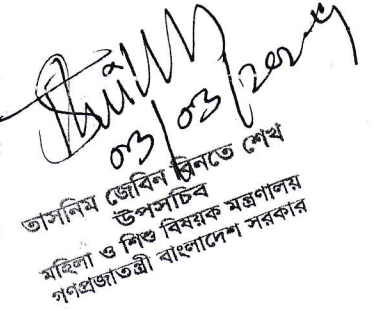 03/03/2025
তাসনিম জেবিন বিনতে শেখ
উপসচিব
মহিলা ও শিশু বিষয়ক মন্ত্রণালয়
গণপ্রজাতন্ত্রী বাংলাদেশ সরকার